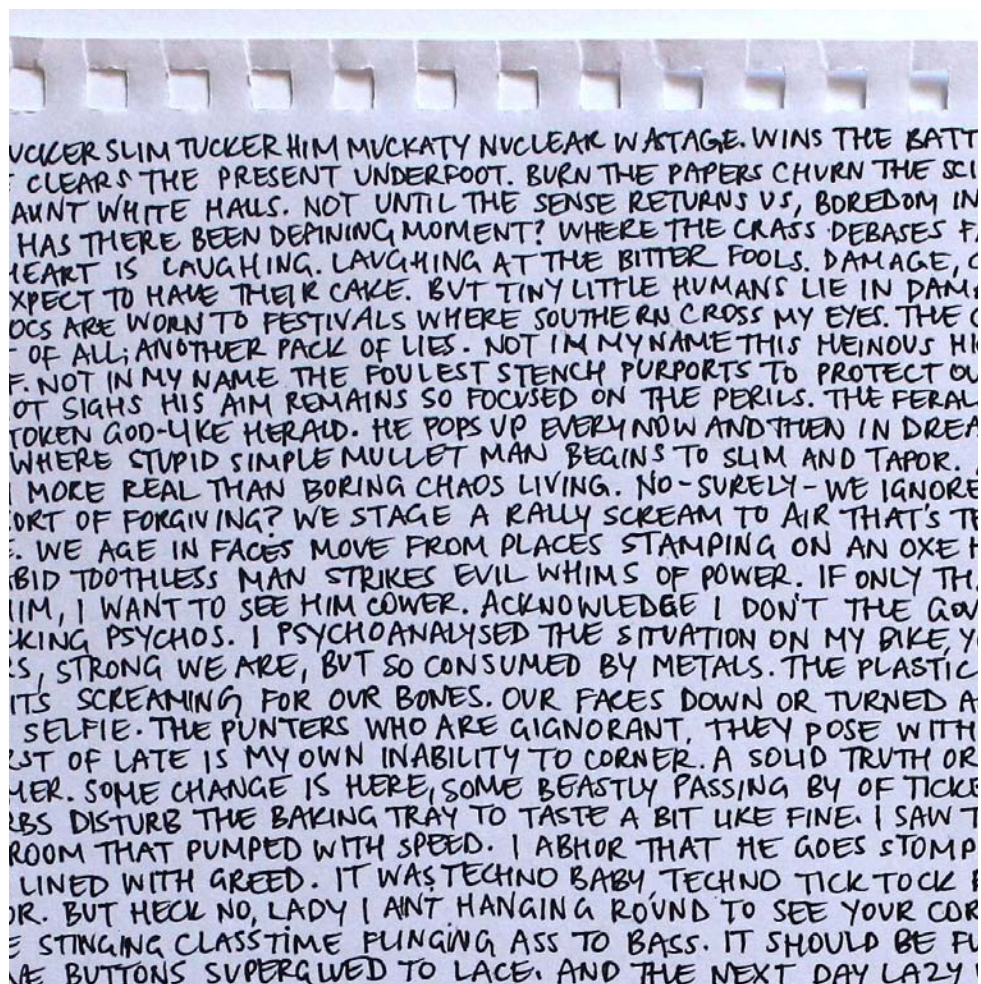 UCKER SLIM TUCKER HIM MUCKATY NUCLEAR WASTAGE. WINS THE BATT
CLEARS THE PRESENT UNDERFOOT. BURN THE PAPERS CHURN THE SCI
AUNT WHITE HALLS. NOT UNTIL THE SENSE RETURNS US, BOREDOM IN
HAS THERE BEEN DEFINING MOMENT? WHERE THE CRASS DEBASES FA
HEART IS LAUGHING. LAUGHING AT THE BITTER FOOLS. DAMAGE, C
XPECT TO HAVE THEIR CAKE. BUT TINY LITTLE HUMANS LIE IN DAMA
OCS ARE WORN TO FESTIVALS WHERE SOUTHERN CROSS MY EYES. THE C
OF ALL; ANOTHER PACK OF LIES. NOT IN MY NAME THIS HEINOUS HI
F. NOT IN MY NAME THE FOULEST STENCH PURPORTS TO PROTECT OU
OT SIGHS HIS AIM REMAINS SO FOCUSED ON THE PERILS. THE FERAL
TOKEN GOD-LIKE HERALD. HE POPS UP EVERY NOW AND THEN IN DREA
WHERE STUPID SIMPLE MULLET MAN BEGINS TO SLIM AND TAPOR.
MORE REAL THAN BORING CHAOS LIVING. NO-SURELY-WE IGNORE
ORT OF FORGIVING? WE STAGE A RALLY SCREAM TO AIR THAT'S TE
. WE AGE IN FACES MOVE FROM PLACES STAMPING ON AN OXE H
BID TOOTHLESS MAN STRIKES EVIL WHIMS OF POWER. IF ONLY THA
IM, I WANT TO SEE HIM COWER. ACKNOWLEDGE I DON'T THE GOV
KING PSYCHOS. I PSYCHOANALYSED THE SITUATION ON MY BIKE, Y
S, STRONG WE ARE, BUT SO CONSUMED BY METALS. THE PLASTIC
ITS SCREAMING FOR OUR BONES. OUR FACES DOWN OR TURNED A
SELFIE. THE PUNTERS WHO ARE GIGNORANT, THEY POSE WITH
ST OF LATE IS MY OWN INABILITY TO CORNER. A SOLID TRUTH OR
MER. SOME CHANGE IS HERE, SOME BEASTLY PASSING BY OF TICKE
RBS DISTURB THE BAKING TRAY TO TASTE A BIT LIKE FINE. I SAW T
ROOM THAT PUMPED WITH SPEED. I ABHOR THAT HE GOES STOMP
LINED WITH GREED. IT WAS TECHNO BABY, TECHNO TICK TOCK
OR. BUT HECK NO, LADY I AINT HANGING ROUND TO SEE YOUR COR
E STINGING CLASSTIME FLINGING ASS TO BASS. IT SHOULD BE FU
BUTTONS SUPERGLUED TO LACE. AND THE NEXT DAY LAZY